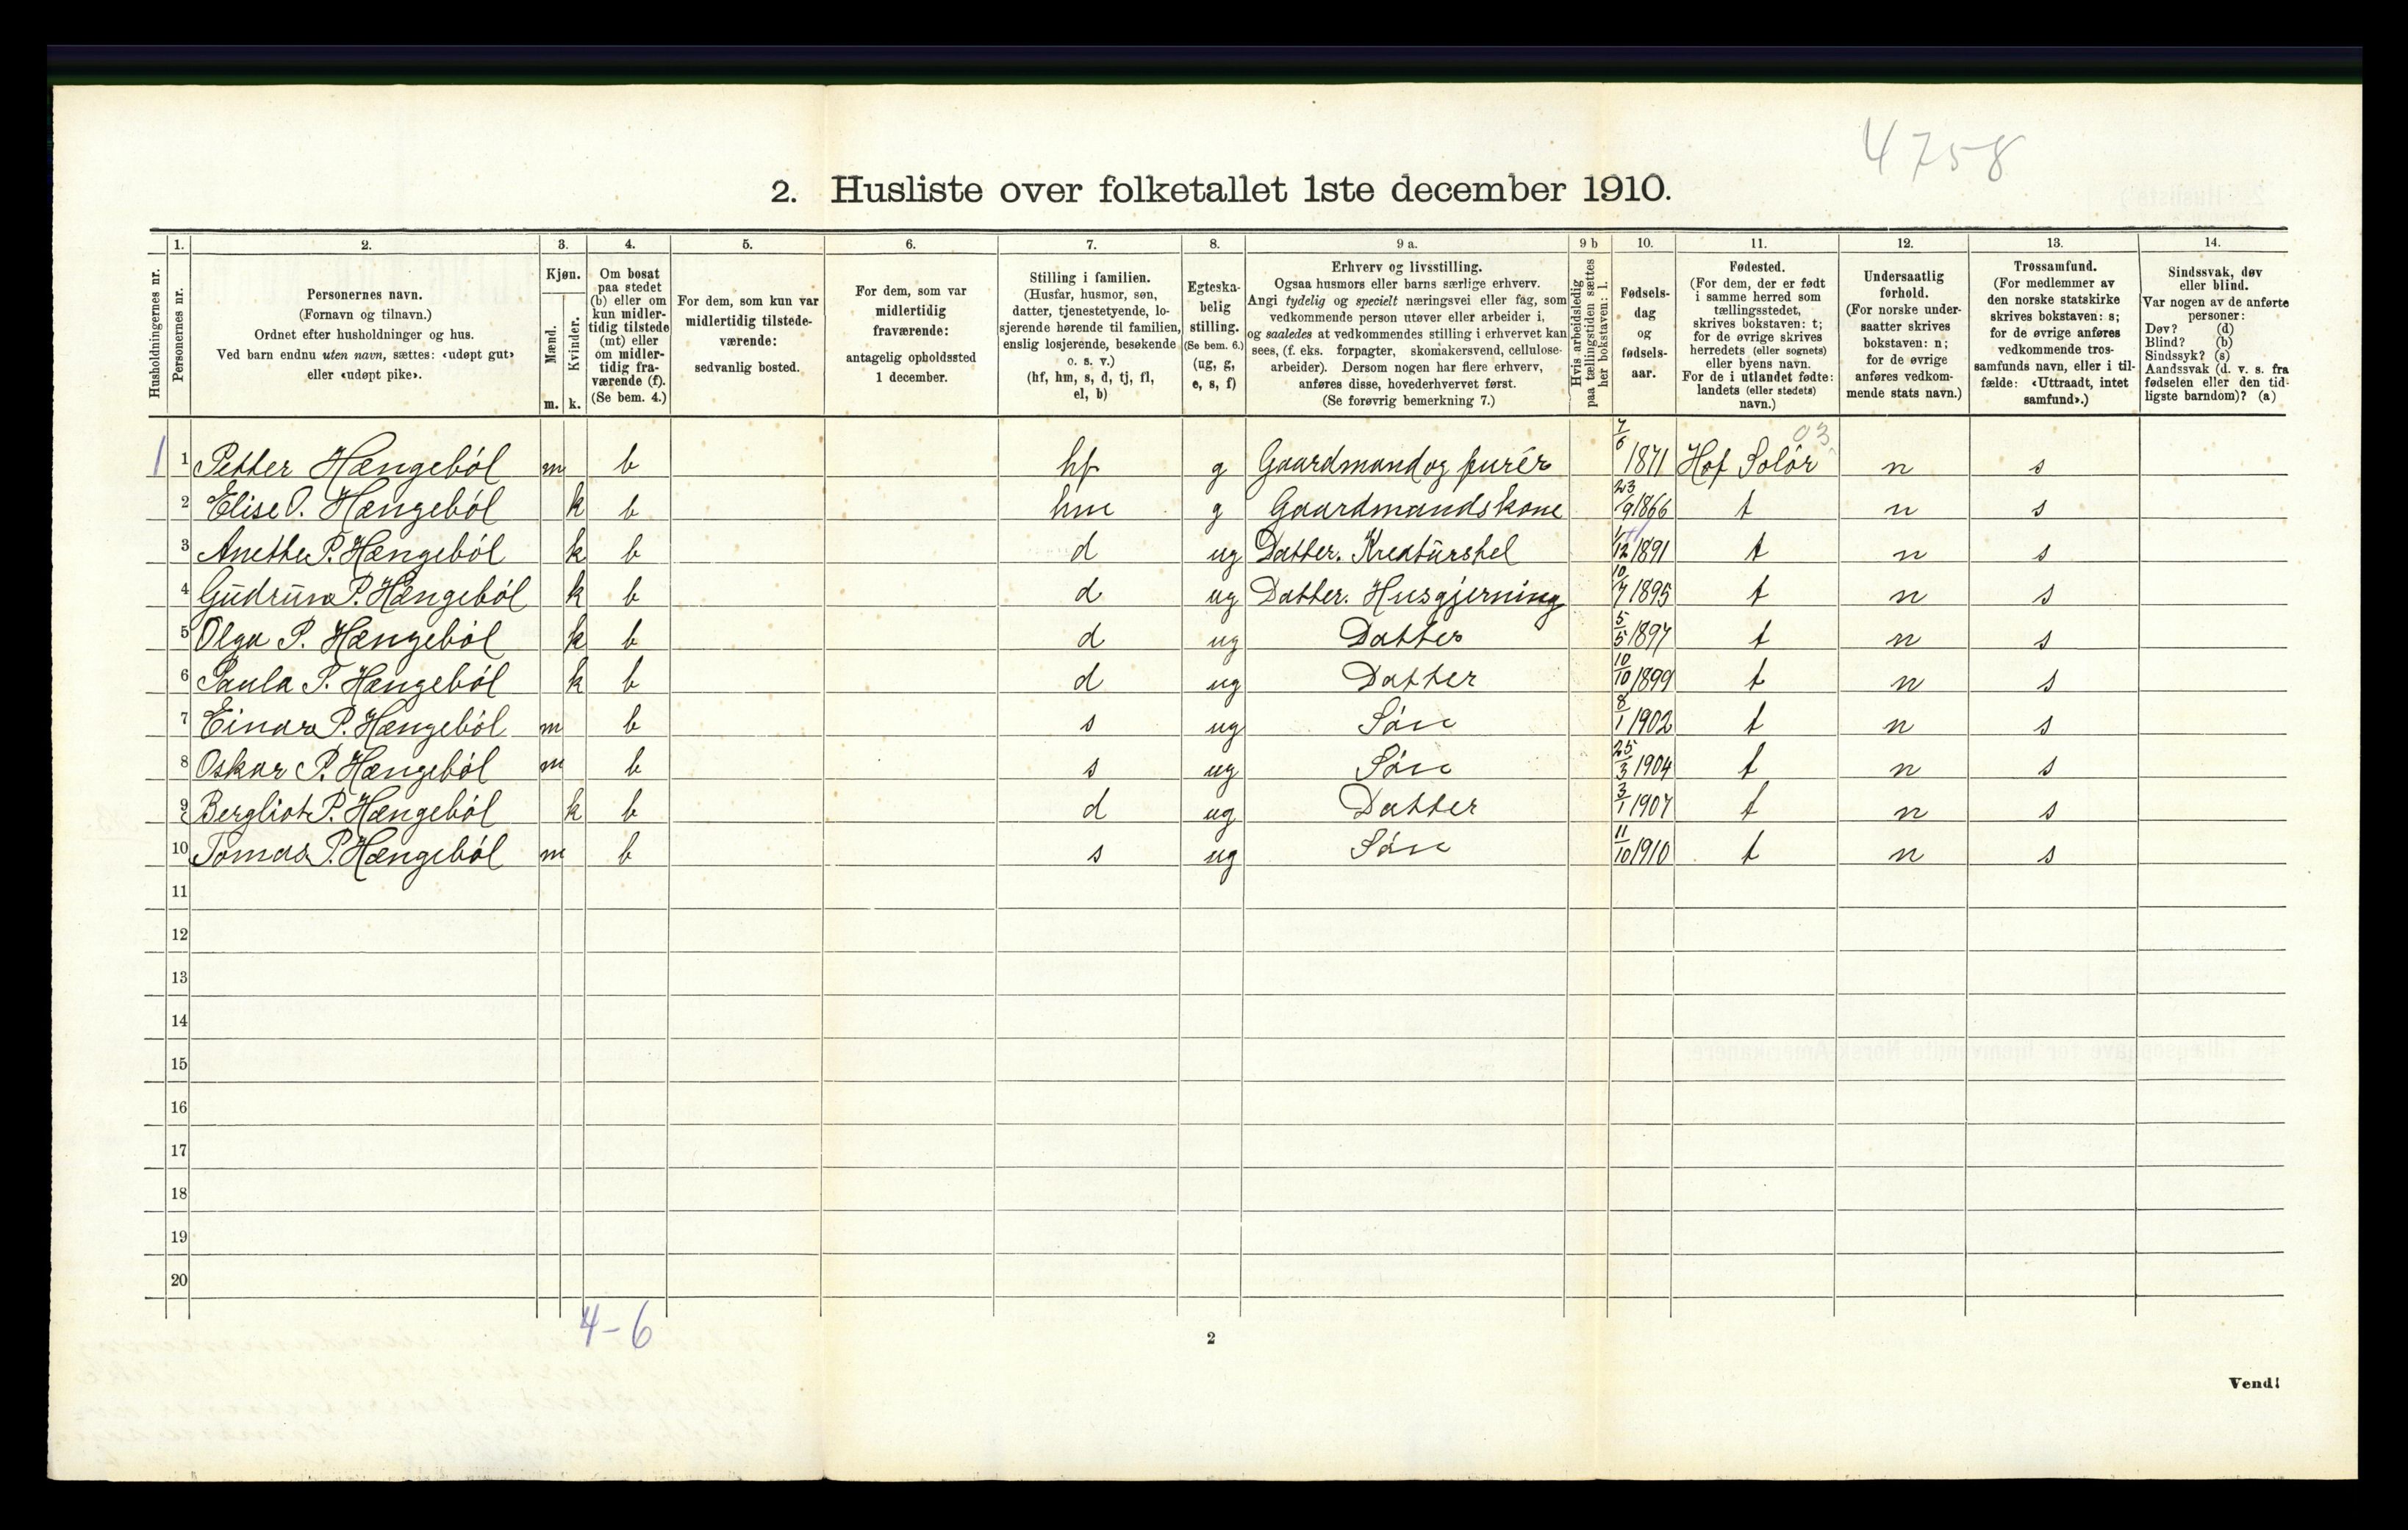 4758
2. Husliste over folketallet 1ste december 1910.
Husholdningernes nr.
1. Personernes nr.
2. Personernes navn.
(Fornavn og tilnavn.)
Ordnet efter husholdninger og hus.
Ved barn endnu uten navn, sættes: «udøpt gut»
eller «udøpt pike».
3. Kjøn.
Mænd. m.
Kvinder. k.
4. Om bosat
paa stedet
(b) eller om
kun midler-
tidig tilstede
(mt) eller
om midler-
tidig fra-
værende (f).
(Se bem. 4.)
5. For dem, som kun var
midlertidig tilstede-
værende:
sedvanlig bosted.
6. For dem, som var
midlertidig
fraværende:
antagelig opholdssted
1 december.
7. Stilling i familien.
(Husfar, husmor, søn,
datter, tjenestetyende, lo-
sjerende hørende til familien,
enslig losjerende, besøkende
o. s. v.)
(hf, hm, s, d, tj, fl,
el, b)
8. Egteska-
belig
stilling.
(Se bem. 6.)
(ug, g,
e, s, f)
9 a. Erhverv og livsstilling.
Ogsaa husmors eller barns særlige erhverv.
Angi tydelig og specielt næringsvei eller fag, som
vedkommende person utøver eller arbeider i,
og saaledes at vedkommendes stilling i erhvervet kan
sees, (f. eks. forpagter, skomakersvend, cellulose-
arbeider). Dersom nogen har flere erhverv,
anføres disse, hovederhvervet først.
(Se forøvrig bemerkning 7.)
9 b Hvis arbeidsledig
paa tællingstiden sættes
her bokstaven: l.
10. Fødsels-
dag
og
fødsels-
aar.
11. Fødested.
(For dem, der er født
i samme herred som
tællingsstedet,
skrives bokstaven: t;
for de øvrige skrives
herredets (eller sognets)
eller byens navn.
For de i utlandet fødte:
landets (eller stedets)
navn.)
12. Undersaatlig
forhold.
(For norske under-
saatter skrives
bokstaven: n;
for de øvrige
anføres vedkom-
mende stats navn.)
13. Trossamfund.
(For medlemmer av
den norske statskirke
skrives bokstaven: s;
for de øvrige anføres
vedkommende tros-
samfunds navn, eller i til-
fælde: «Uttraadt, intet
samfund».)
14. Sindssvak, døv
eller blind.
Var nogen av de anførte
personer:
Døv? (d)
Blind? (b)
Sindssyk? (s)
Aandssvak (d. v. s. fra
fødselen eller den tid-
ligste barndom)? (a)
03
1 1 Petter Hængeból m b hf g Gaardmand og furér 7/6 1871 Hof Solør n s
2 Elise P. Hængeból k b hm g Gaardmandskone 23/9 1866 t n s
3 Anethe P. Hængeból k b d ug Datter. Kreaturstel 1/12 1891 t n s
4 Gudrun P. Hængeból k b d ug Datter. Husgjerning 10/7 1895 t n s
5 Olga P. Hængeból k b d ug Datter 5/5 1897 t n s
6 Paula P. Hængeból k b d ug Datter 10/10 1899 t n s
7 Einar P. Hængeból m b s ug Søn 8/1 1902 t n s
8 Oskar P. Hængeból m b s ug Søn 25/3 1904 t n s
9 Bergliot P. Hængeból k b d ug Datter 3/1 1907 t n s
10 Tomas P. Hængeból m b s ug Søn 11/10 1910 t n s
11
12
13
14
15
16
17
18
19
20
4-6
2
Vend!